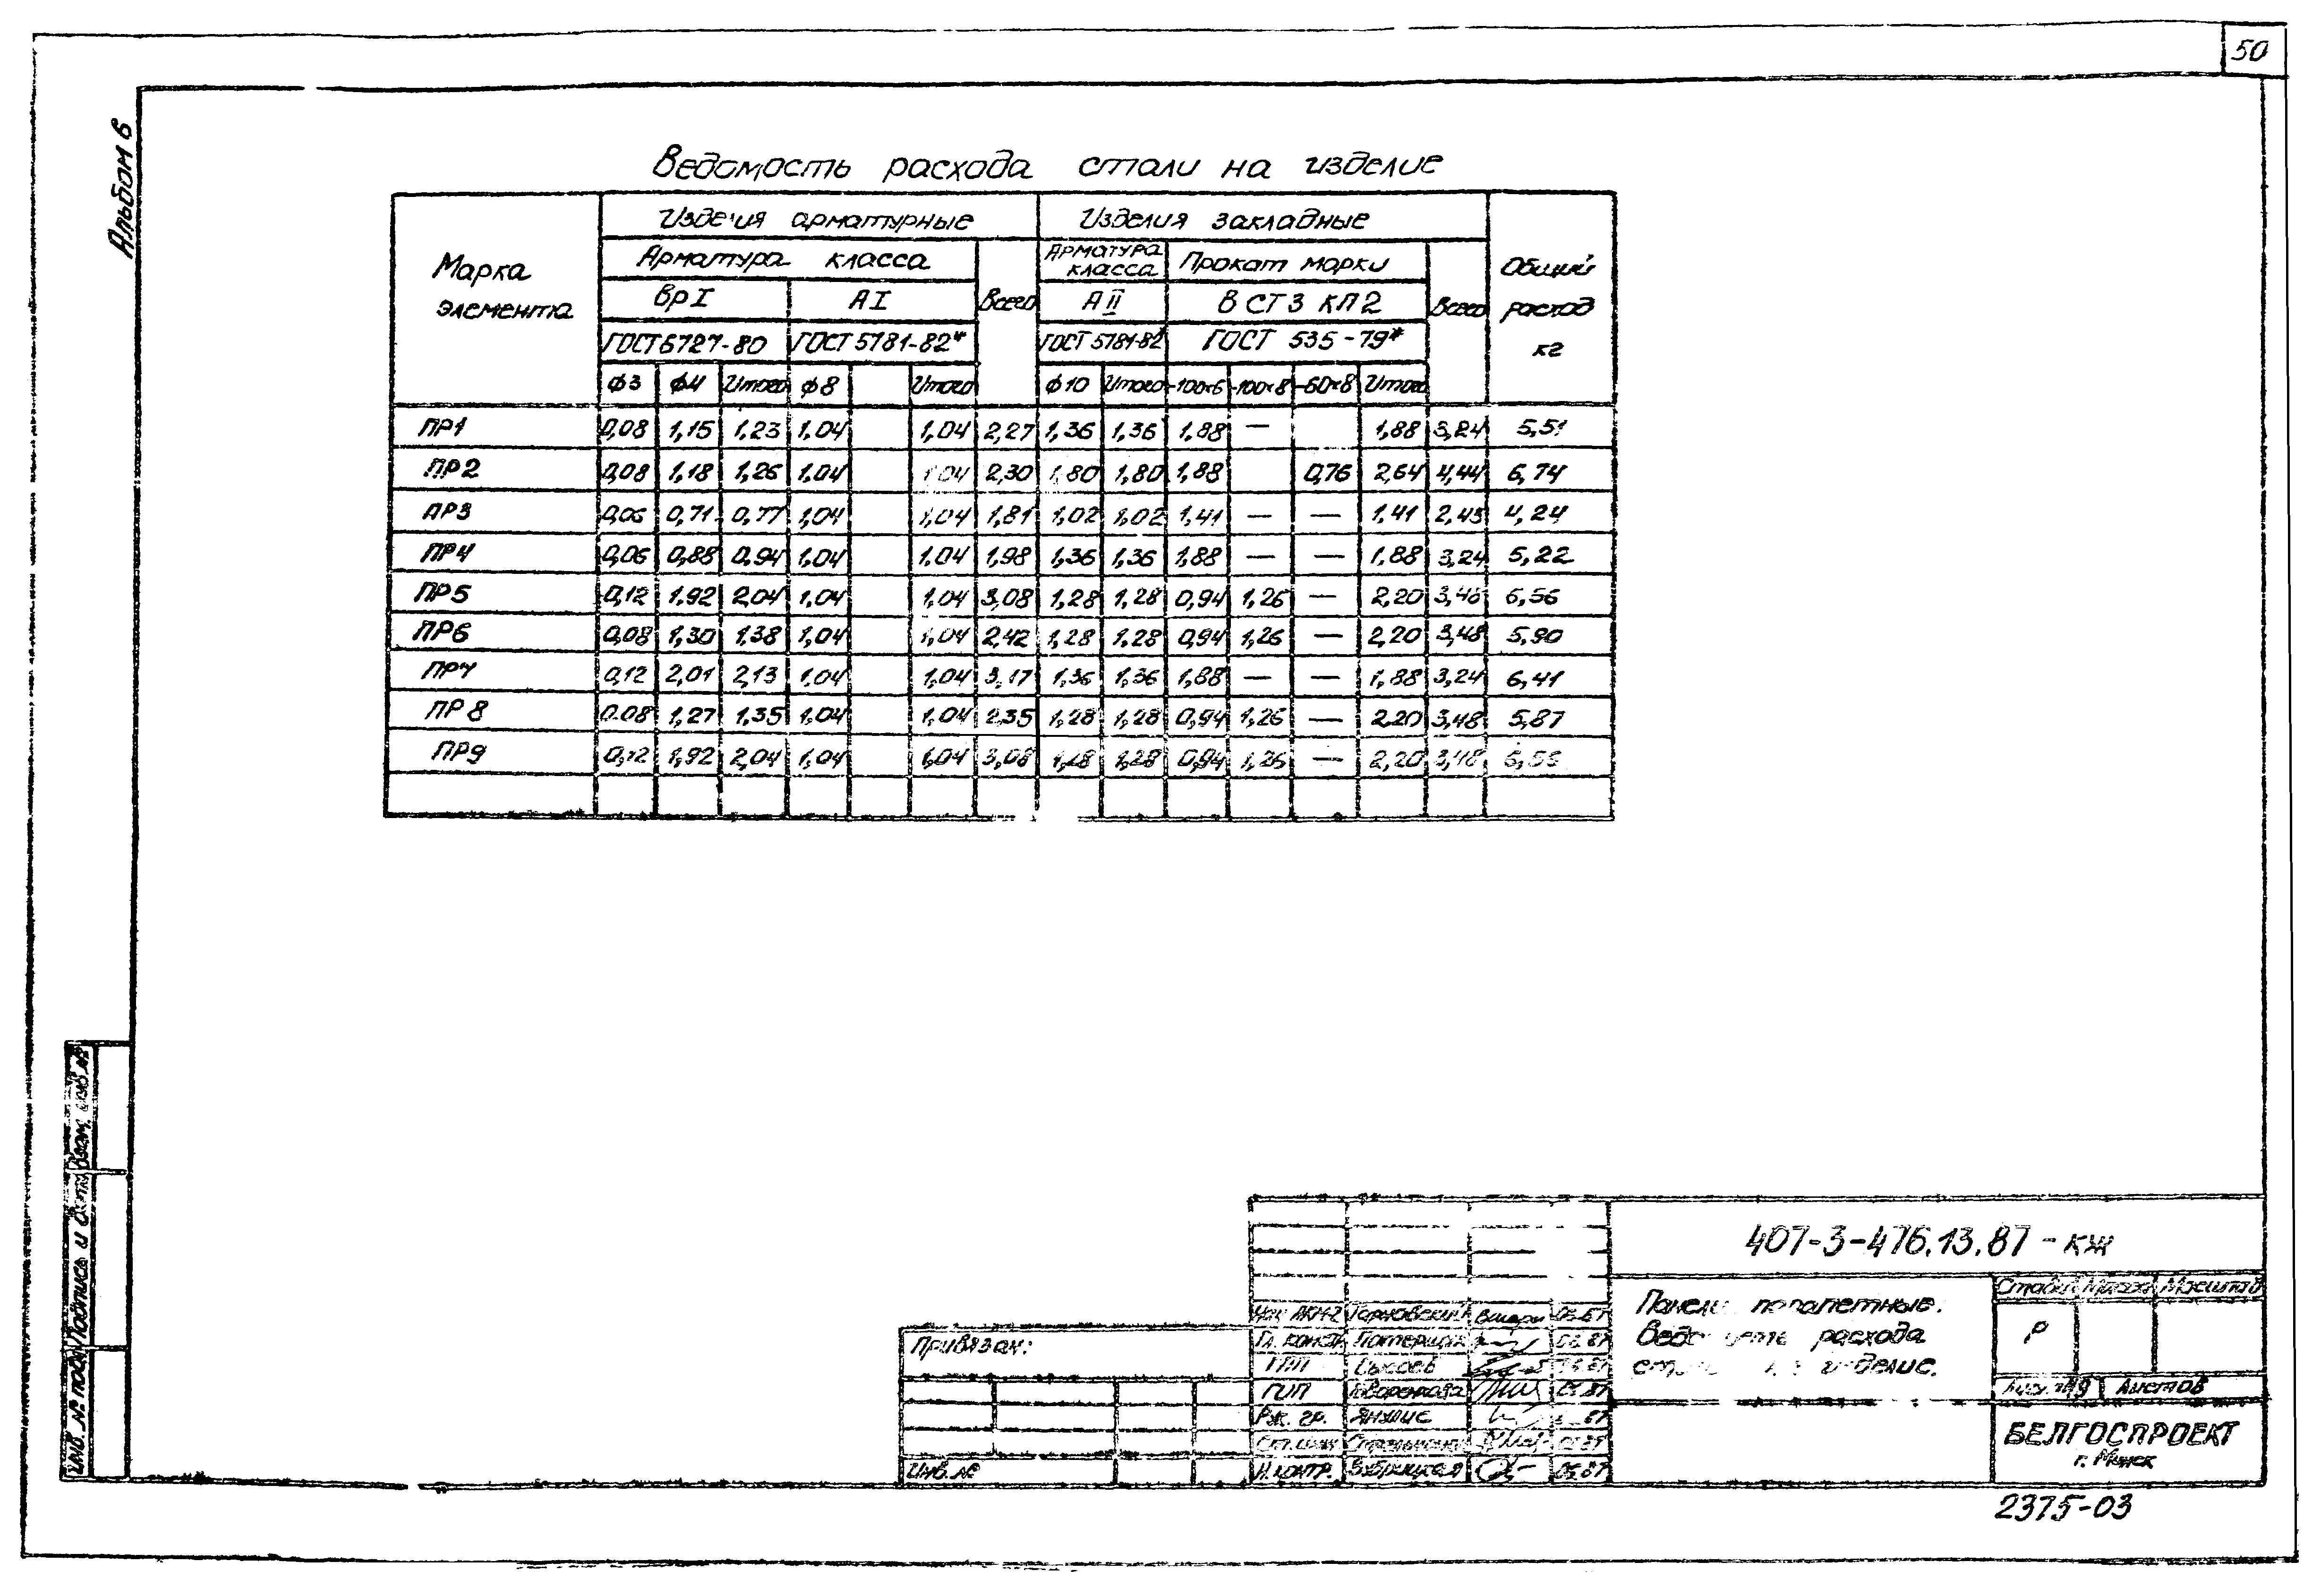 50
Альбом 6
Ведомость расхода стали на изделие
Марка элемента
Изделия арматурные
Изделия закладные
Общий расход кг
Арматура класса
Всего
Арматура класса
Прокат марки
Всего
Вр I
А I
А II
В СТ 3 КП 2
ГОСТ 6727-80
ГОСТ 5781-82*
ГОСТ 5781-82
ГОСТ 535-79*
ф3 ф4 Итого ф8 Итого ф10 Итого -100×6 -100×8 -60×8 Итого
ПР1 0,08 1,15 1,23 1,04 1,04 2,27 1,36 1,36 1,88 — 1,88 3,24 5,51
ПР2 0,08 1,18 1,26 1,04 1,04 2,30 1,80 1,80 1,88 0,76 2,64 4,44 6,74
ПР3 0,06 0,71 0,77 1,04 1,04 1,81 1,02 1,02 1,41 — — 1,41 2,43 4,24
ПР4 0,06 0,88 0,94 1,04 1,04 1,98 1,36 1,36 1,88 — — 1,88 3,24 5,22
ПР5 0,12 1,92 2,04 1,04 1,04 3,08 1,28 1,28 0,94 1,26 — 2,20 3,48 6,56
ПР6 0,08 1,30 1,38 1,04 1,04 2,42 1,28 1,28 0,94 1,26 — 2,20 3,48 5,90
ПР7 0,12 2,01 2,13 1,04 1,04 3,17 1,36 1,36 1,88 — — 1,88 3,24 6,41
ПР8 0.08 1,27 1,35 1,04 1,04 2,35 1,28 1,28 0,94 1,26 — 2,20 3,48 5,87
ПР9 0,12 1,92 2,04 1,04 1,04 3,08 1,28 1,28 0,94 1,26 — 2,20 3,48 6,56
Взам. инв. №
Подпись и
Инв. № подл
407-3-476.13.87-КЖ
Привязан:
Инв. №
05.87
Гл. констр. 05.87
ГИП 05.87
Рук. гр. 87
Ст. инж
Н. контр. 05.87
Панели парапетные.
Ведомость расхода
стали на изделие.
Стадия Масса Масштаб
Р
Листов
БЕЛГОСПРОЕКТ
г. Минск
2375-03